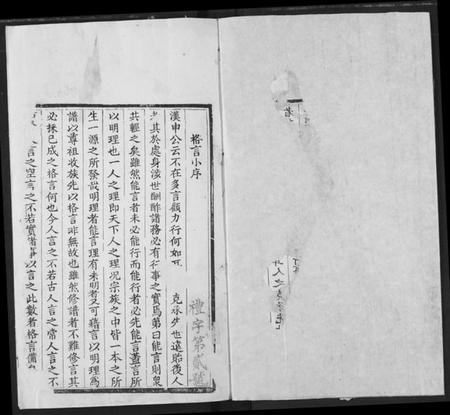 格言小序
漢申公云不在多言顧力行何如耳 克承少也遠貽後人
其於處身涉世酬酢諸務必有行事之實焉第曰能言則衆
共輕之矣雖然能言者未必能行而能行者必先能言蓋言所
以明理也一人之理即天下人之理况宗族之中皆一本之所
生一源之所發說明理者能言理有未明者又可藉言以明理為
譜以尊祖收族先以格言非無故也雖然修譜者不難修言其
必採已成之格言何也今人言之不若古人言之常人言之不
言之空言之不若實濟事以言之此數者格言備
禮字第貳號